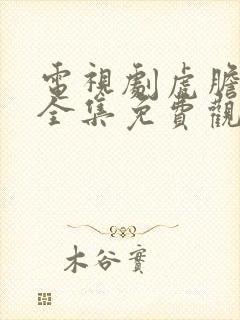 電視劇虎膽
全集免費觀
木谷實